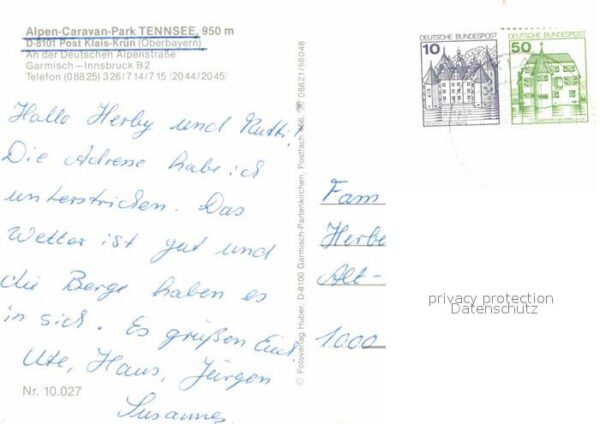 Alpen-Caravan-Park TENNSEE, 950 m
D-8101 Post Klais-Krün (Oberbayern)
An der Deutschen Alpenstraße
Garmisch – Innsbruck B2
Telefon (08825) 326/714/715 (2044/2045)
Hallo Herby und Mutti!
Die Adresse habe ich
unterstrichen. Das
Wetter ist gut und
die Berge haben es
in sich. Es grüßen Euch
Ute, Hans, Jürgen
Susanne
Nr. 10.027
© Fotoverlag Huber, D-8100 Garmisch-Partenkirchen, Postfach 466, ☎ 08821/59048
10 DEUTSCHE BUNDESPOST
50 DEUTSCHE BUNDESPOST
Fam
Herbe
Alt-
1000
privacy protection
Datenschutz